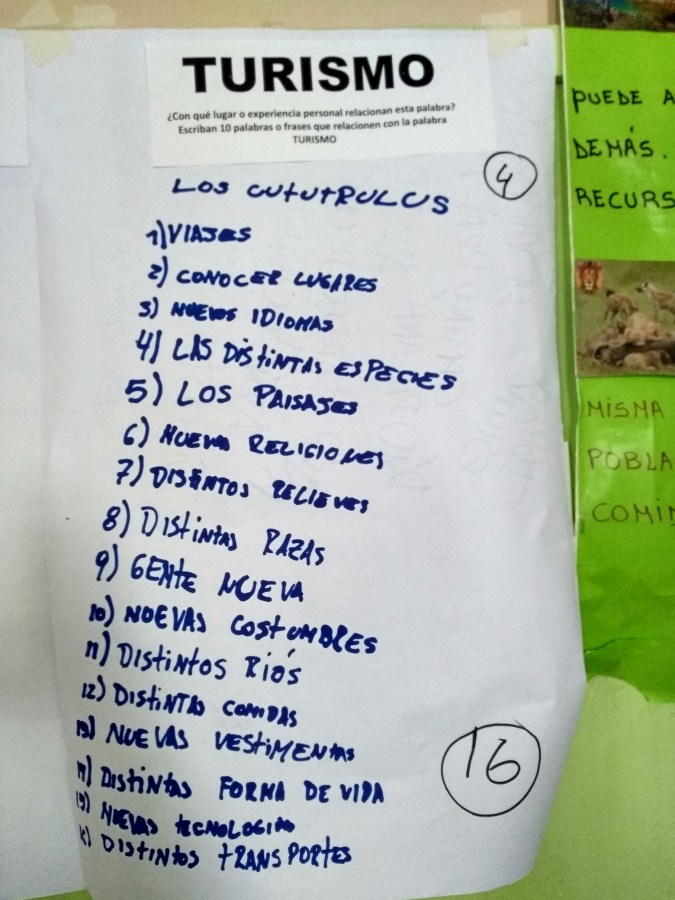 TURISMO
¿Con qué lugar o experiencia personal relacionan esta palabra?
Escriban 10 palabras o frases que relacionen con la palabra
TURISMO
4
LOS CUTUTRULUS
1) VIAJES
2) CONOCER LUGARES
3) NUEVOS IDIOMAS
4) LAS DISTINTAS ESPECIES
5) LOS PAISAJES
6) NUEVA RELIGIONES
7) DISTINTOS RELIEVES
8) DISTINTAS RAZAS
9) GENTE NUEVA
10) NUEVAS COSTUMBRES
11) DISTINTOS RIÓS
12) DISTINTAS COMIDAS
13) NUEVAS VESTIMENTAS
14) DISTINTAS FORMA DE VIDA
15) NUEVAS TECNOLOGIAS
16) DISTINTOS TRANSPORTES
16
PUEDE A
DEMÁS.
RECURS
MISMA
POBLA
COMIN